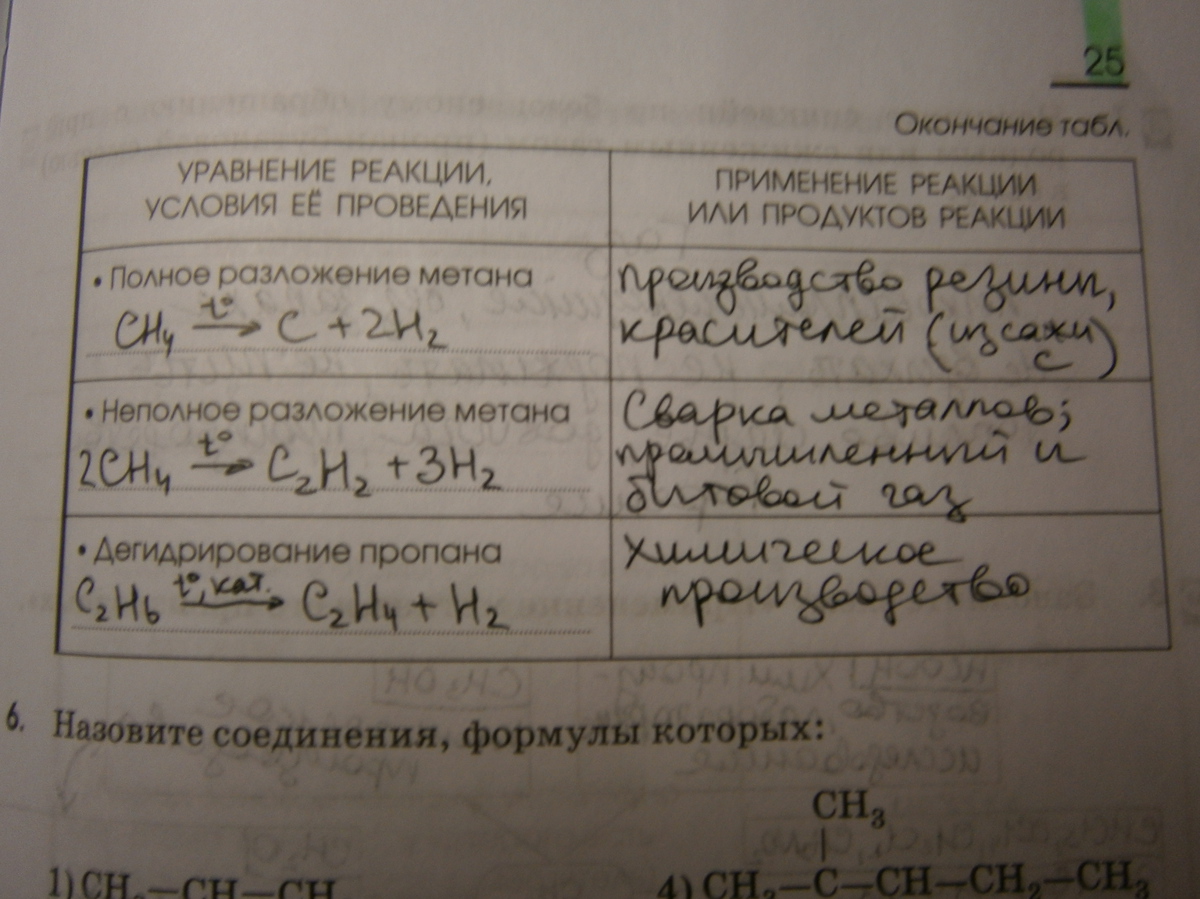 25
Окончание табл.
УРАВНЕНИЕ РЕАКЦИИ,
УСЛОВИЯ ЕЁ ПРОВЕДЕНИЯ
ПРИМЕНЕНИЕ РЕАКЦИИ
ИЛИ ПРОДУКТОВ РЕАКЦИИ
• Полное разложение метана
CH₄ —t°→ C + 2H₂
производство резины,
красителей (из сажи)
C
• Неполное разложение метана
2CH₄ —t°→ C₂H₂ + 3H₂
Сварка металлов;
промышленный и
бытовой газ
• Дегидрирование пропана
C₂H₆ —t°, кат.→ C₂H₄ + H₂
химическое
производство
6. Назовите соединения, формулы которых:
CH₃
1) CH₃—CH—CH
4) CH₃—C—CH—CH₂—CH₃